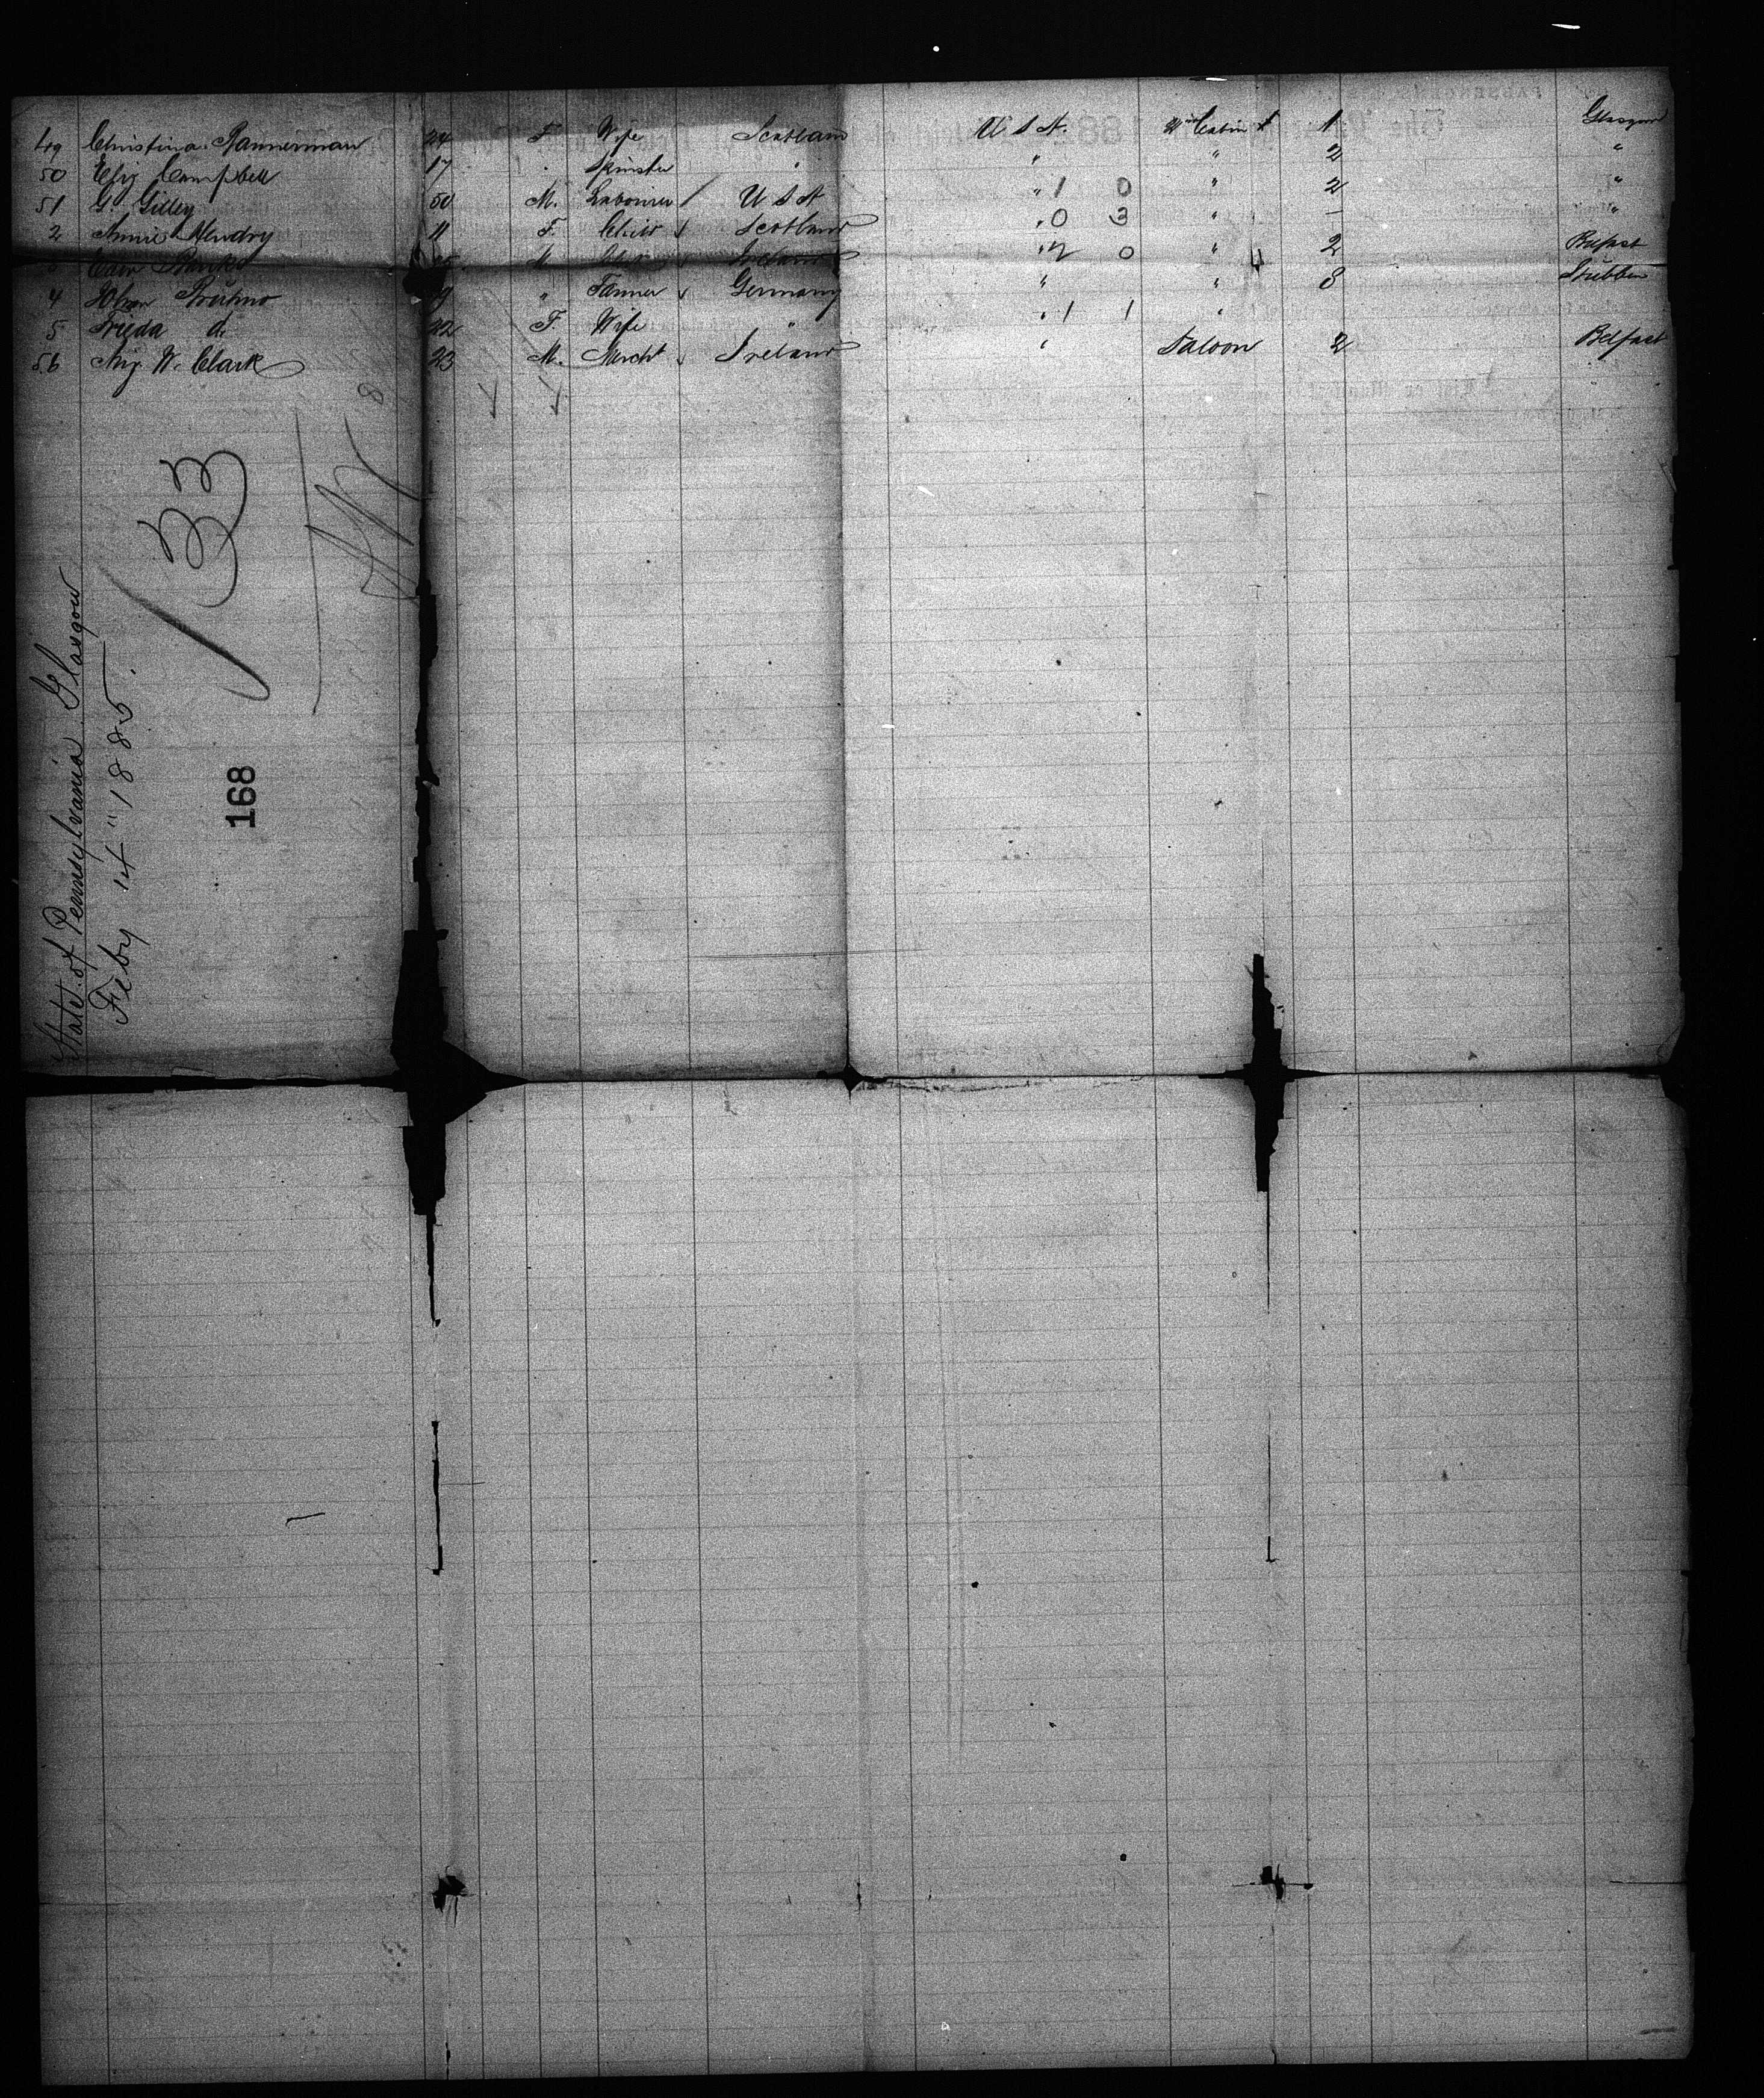 49 Christina Bannerman 24 F. Wife Scotland U S A. Cabin 1 Glasgow
50 Eliz Campbell 17 " Spinster " " " 2 "
51 G. Gilley 50 M. Labourer / U S A " 1 0 " 2 "
2 Annie Hendry 11 F. Child Scotland " 0 3 " – "
M Ireland " 2 0 " 2 Belfast
4 " Farmer Germany " " 3
5 Frieda do 22 F. Wife " " 1 1 "
56 W. Clark 23 M. Mercht Ireland " Saloon 2 Belfast
8
133
State of Pennsylvania. Glasgow
Feby 14" 1885.
168